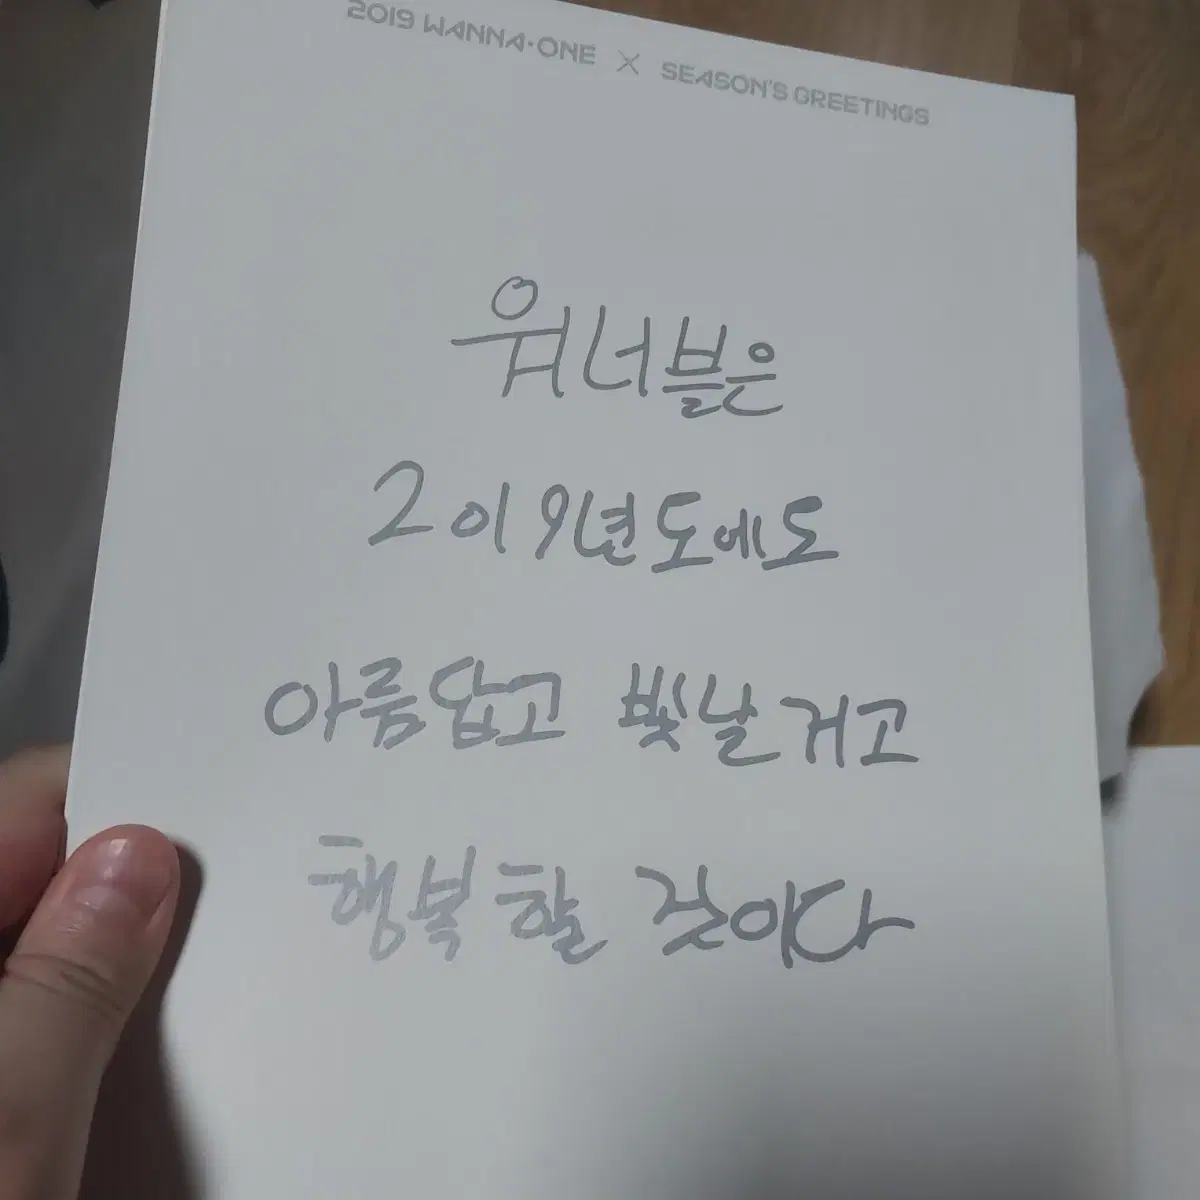 2019 WANNA·ONE X SEASON'S GREETINGS
워너블은
2019년도에도
아름답고 빛날거고
행복할 것이다